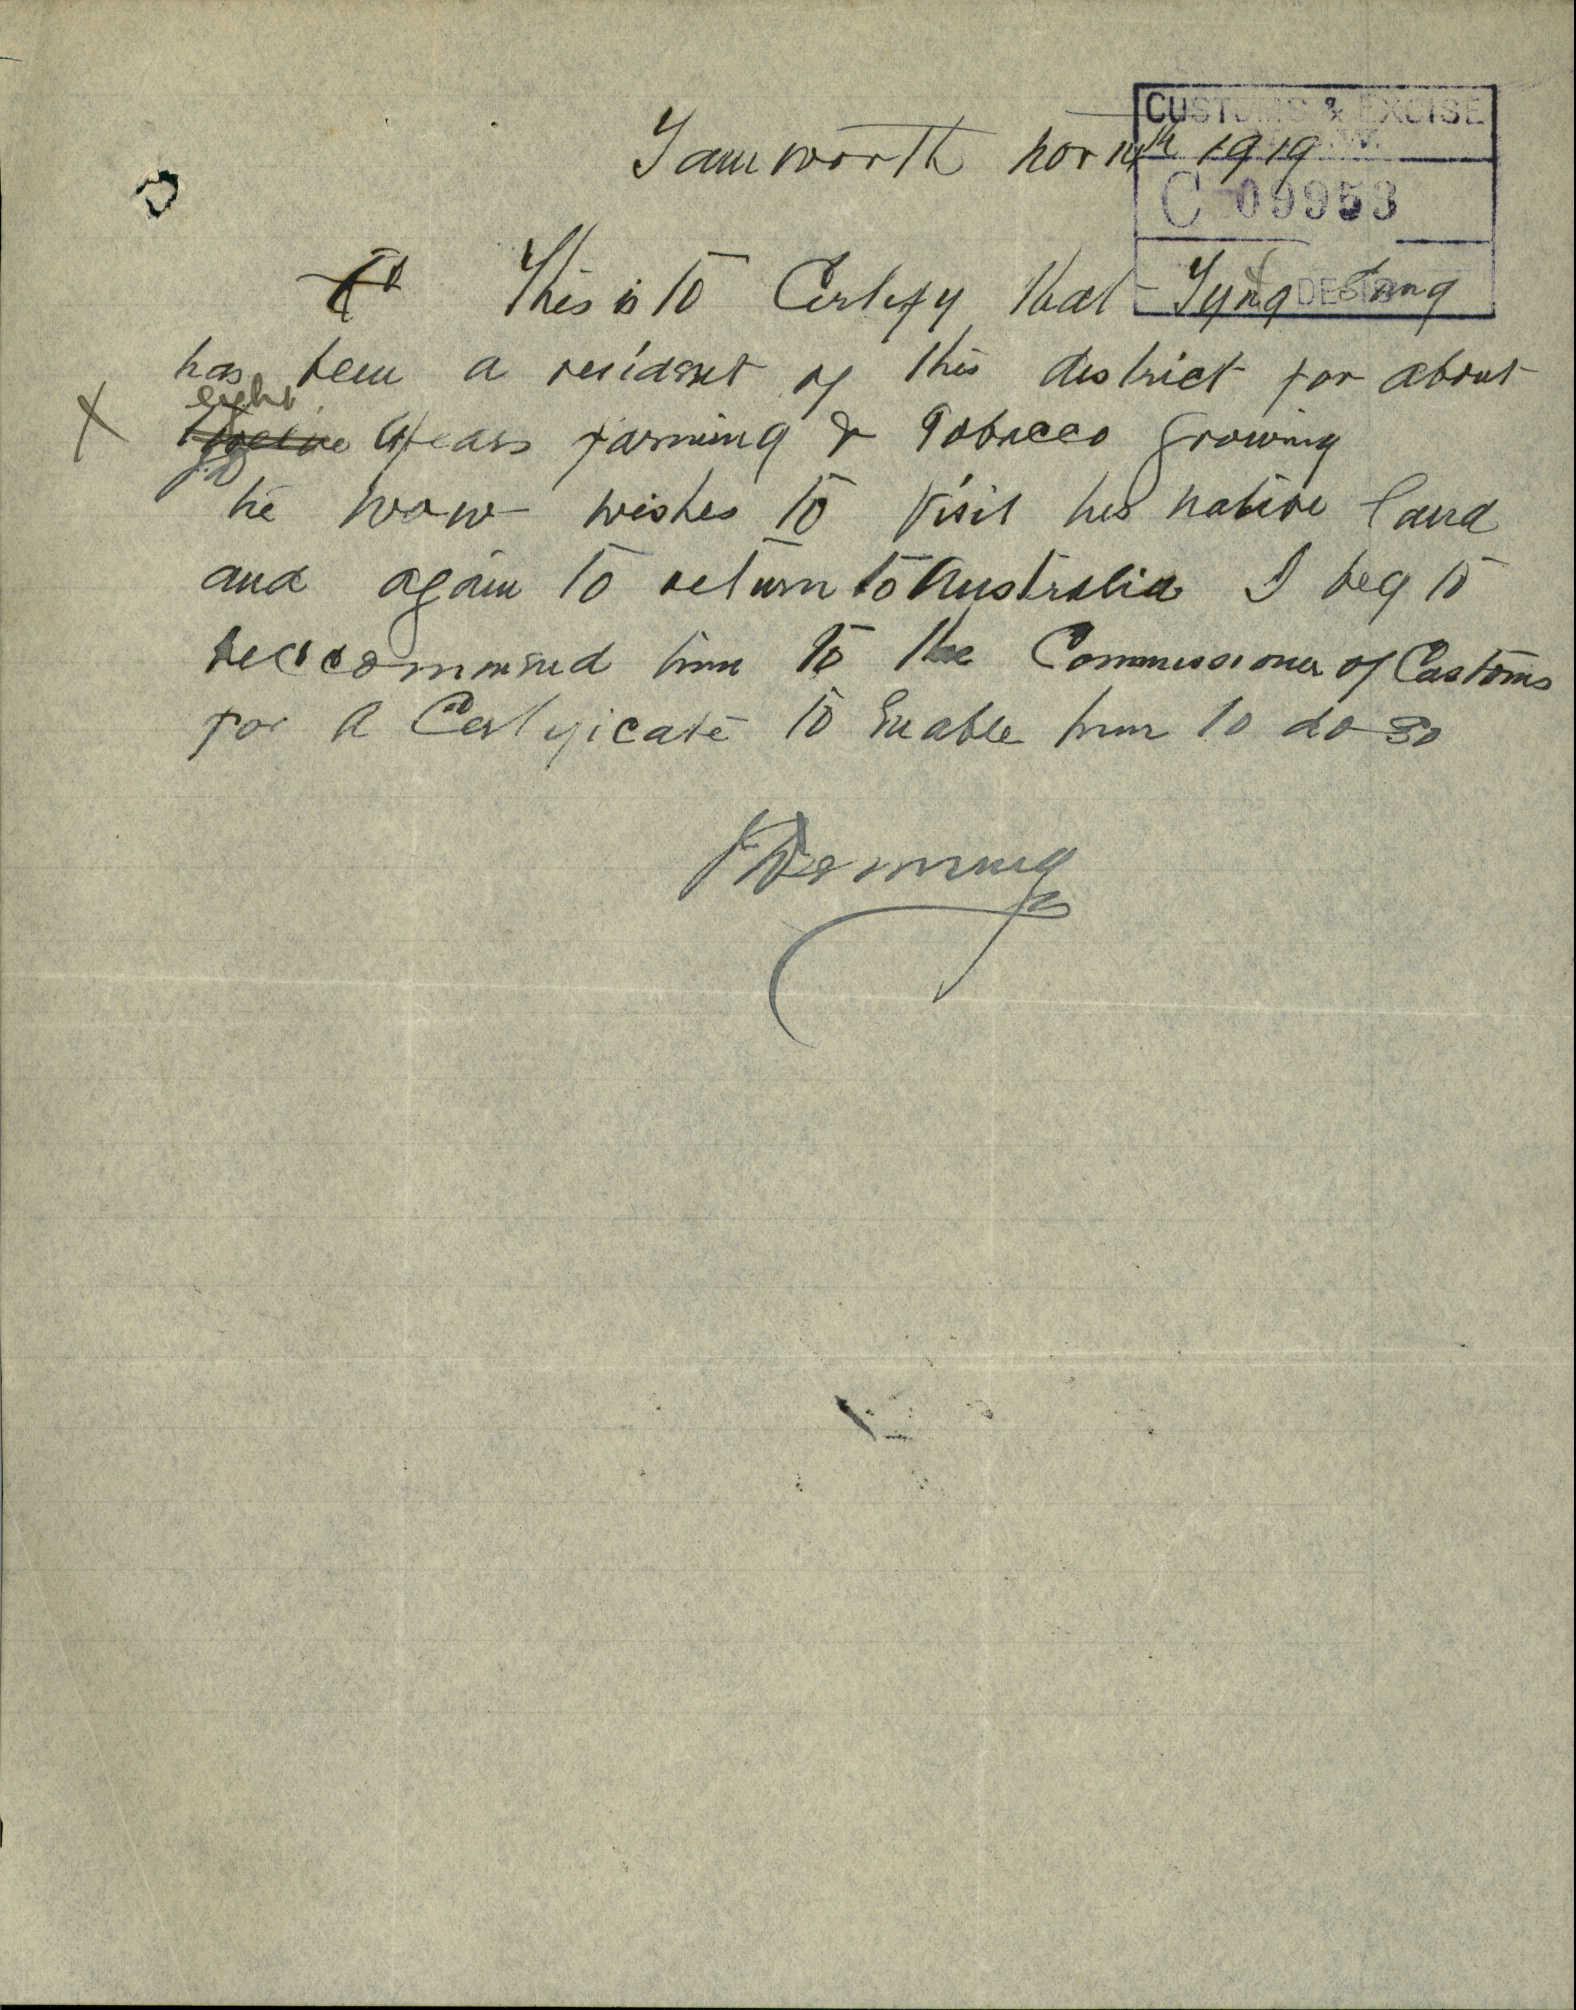 CUSTOMS & EXCISE
N.S.W.
C 09953
Tamworth Nov 14th 1919
To This is to Certify that Tyng
has been a residemt of this district for about
eight
twelve years farming & Tobacco growing
he now wishes to visit his native land
and again to return to Australia I beg to
reccommend him to the Commissioner of Customs
for A Certificate to Enable him to do so